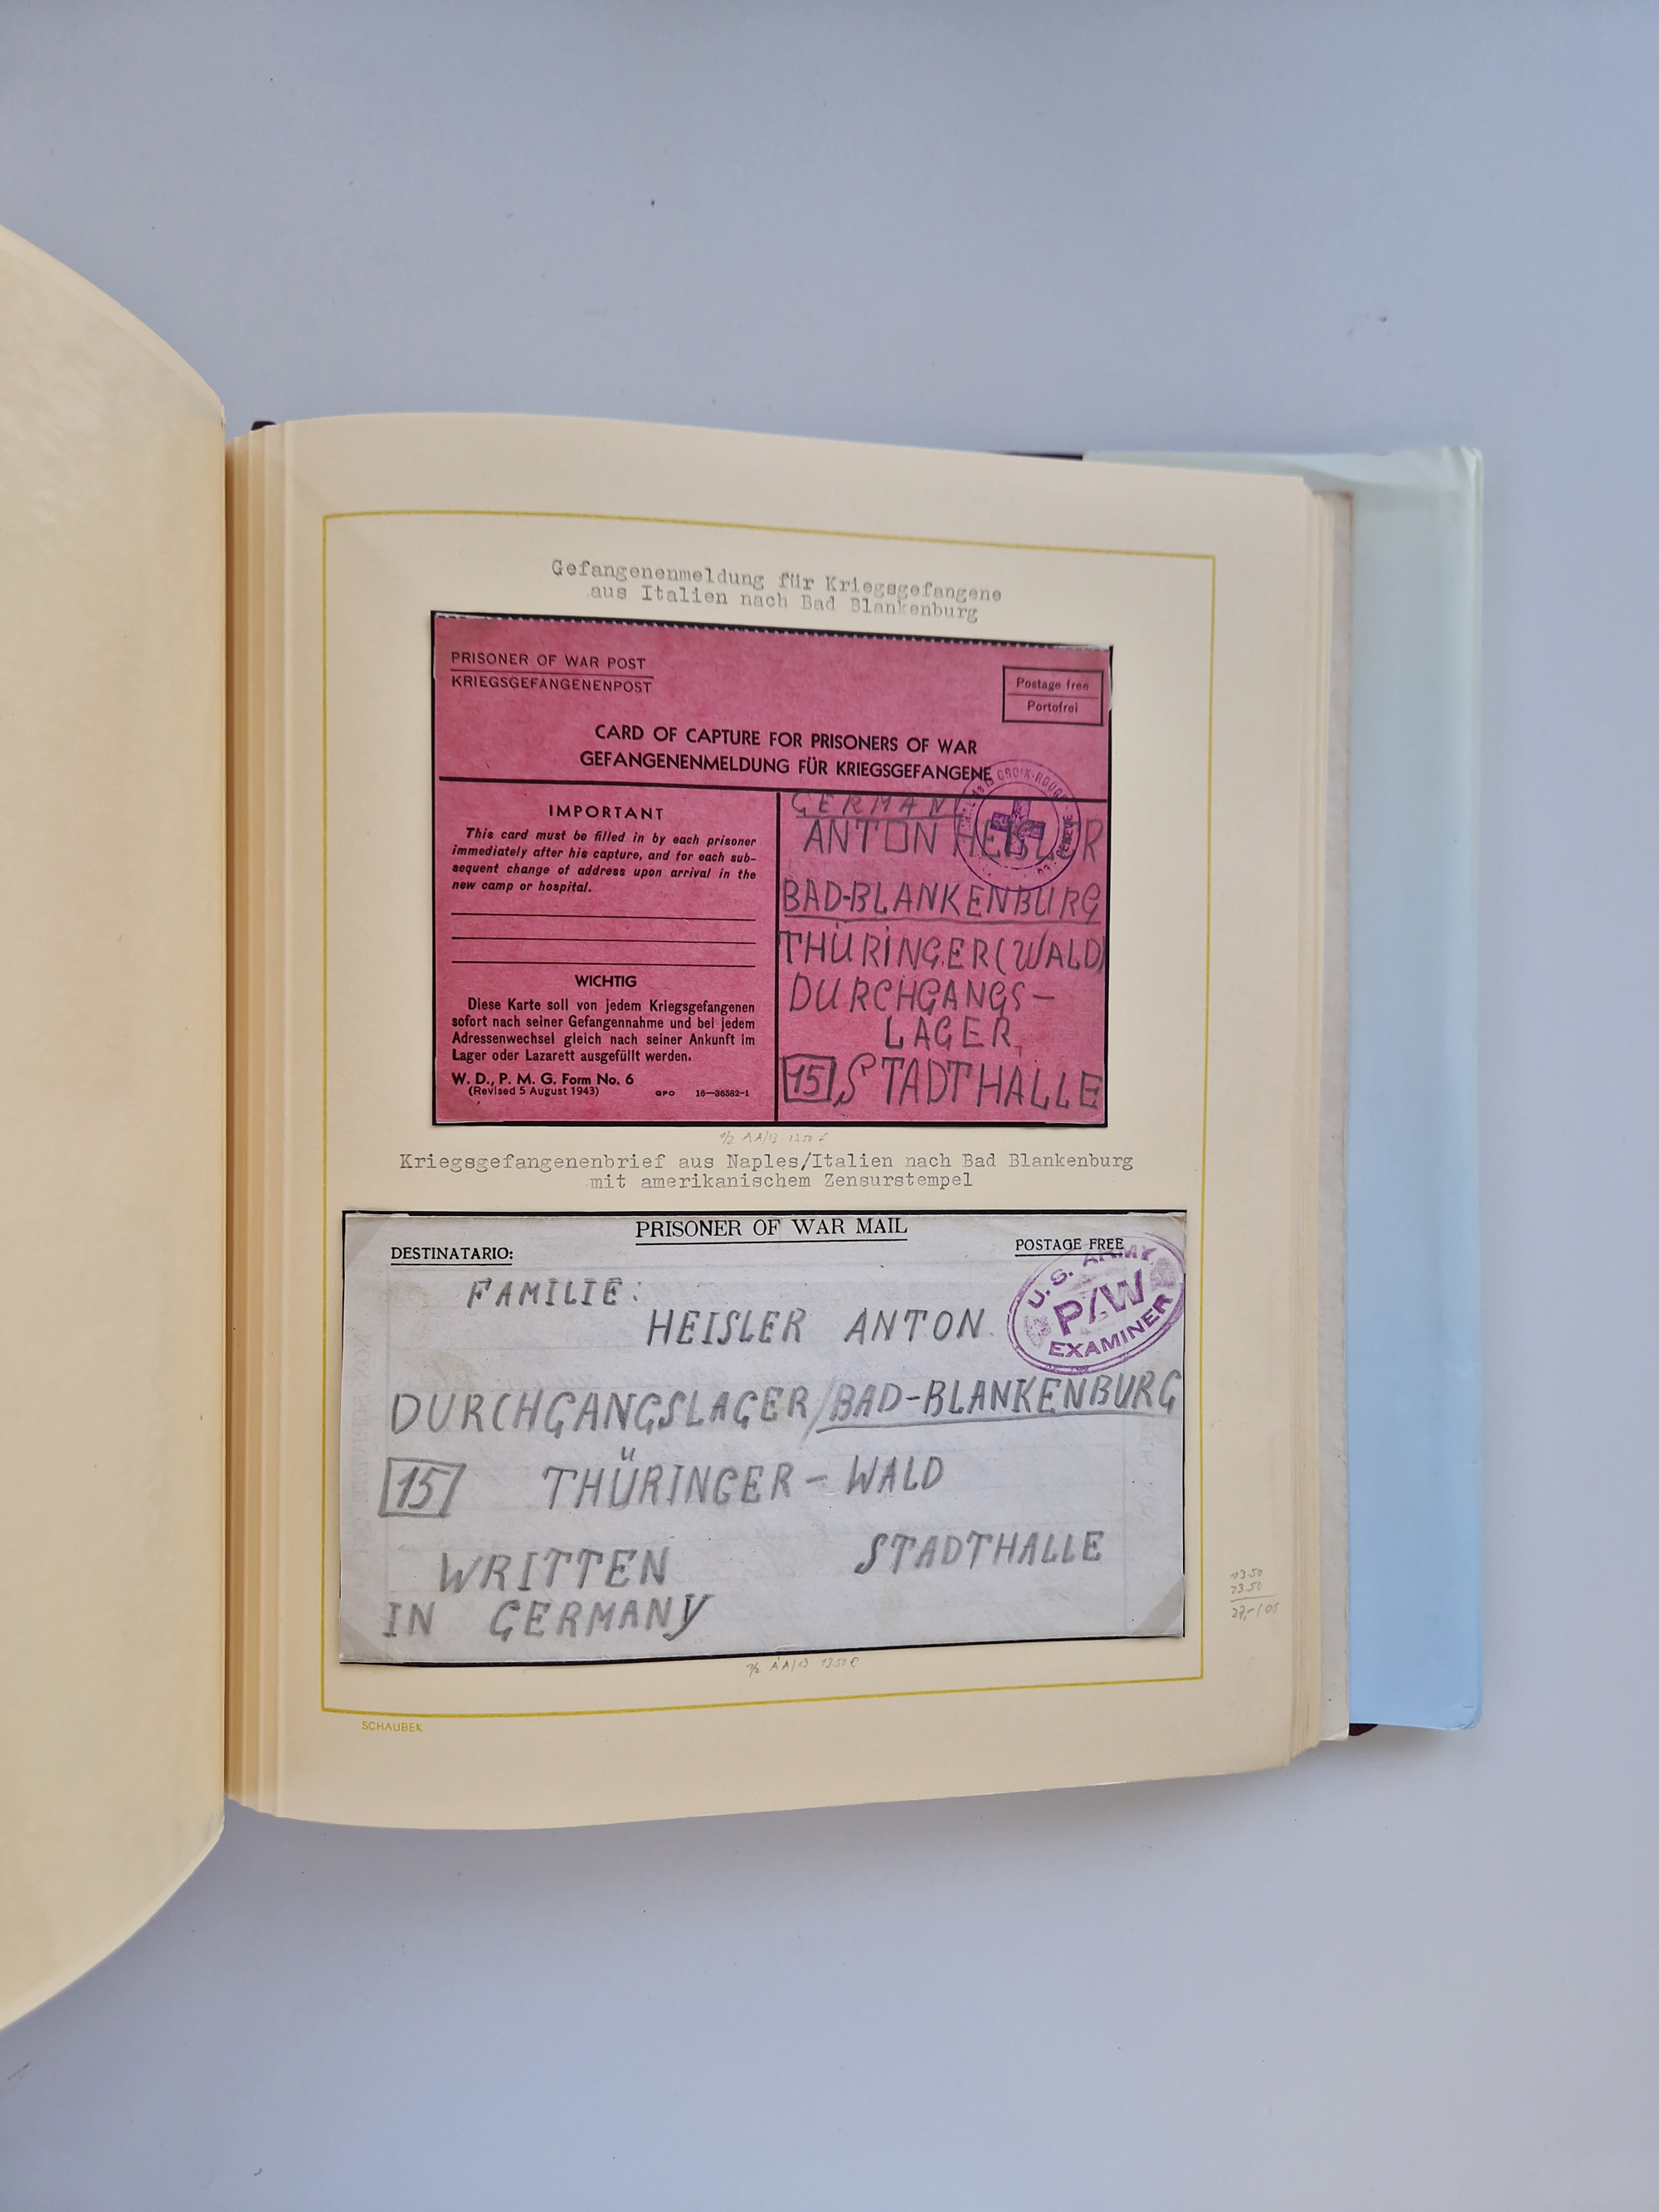 Gefangenenmeldung für Kriegsgefangene
aus Italien nach Bad Blankenburg
PRISONER OF WAR POST
KRIEGSGEFANGENENPOST
Postage free
Portofrei
CARD OF CAPTURE FOR PRISONERS OF WAR
GEFANGENENMELDUNG FÜR KRIEGSGEFANGENE
IMPORTANT
This card must be filled in by each prisoner
immediately after his capture, and for each sub-
sequent change of address upon arrival in the
new camp or hospital.
WICHTIG
Diese Karte soll von jedem Kriegsgefangenen
sofort nach seiner Gefangennahme und bei jedem
Adressenwechsel gleich nach seiner Ankunft im
Lager oder Lazarett ausgefüllt werden.
W. D., P. M. G. Form No. 6
(Revised 5 August 1943)
GPO 16—36582-1
CROIX-ROUGE
GENÈVE
GERMANY
ANTON HEISLER
BAD-BLANKENBURG
THÜRINGER(WALD)
DURCHGANGS-
LAGER,
15 STADTHALLE
Kriegsgefangenenbrief aus Naples/Italien nach Bad Blankenburg
mit amerikanischem Zensurstempel
PRISONER OF WAR MAIL
DESTINATARIO:
POSTAGE FREE
U.S. ARMY
P/W
EXAMINER
FAMILIE:
HEISLER ANTON
DURCHGANGSLAGER/BAD-BLANKENBURG
15 THÜRINGER-WALD
STADTHALLE
WRITTEN
IN GERMANY
SCHAUBEK